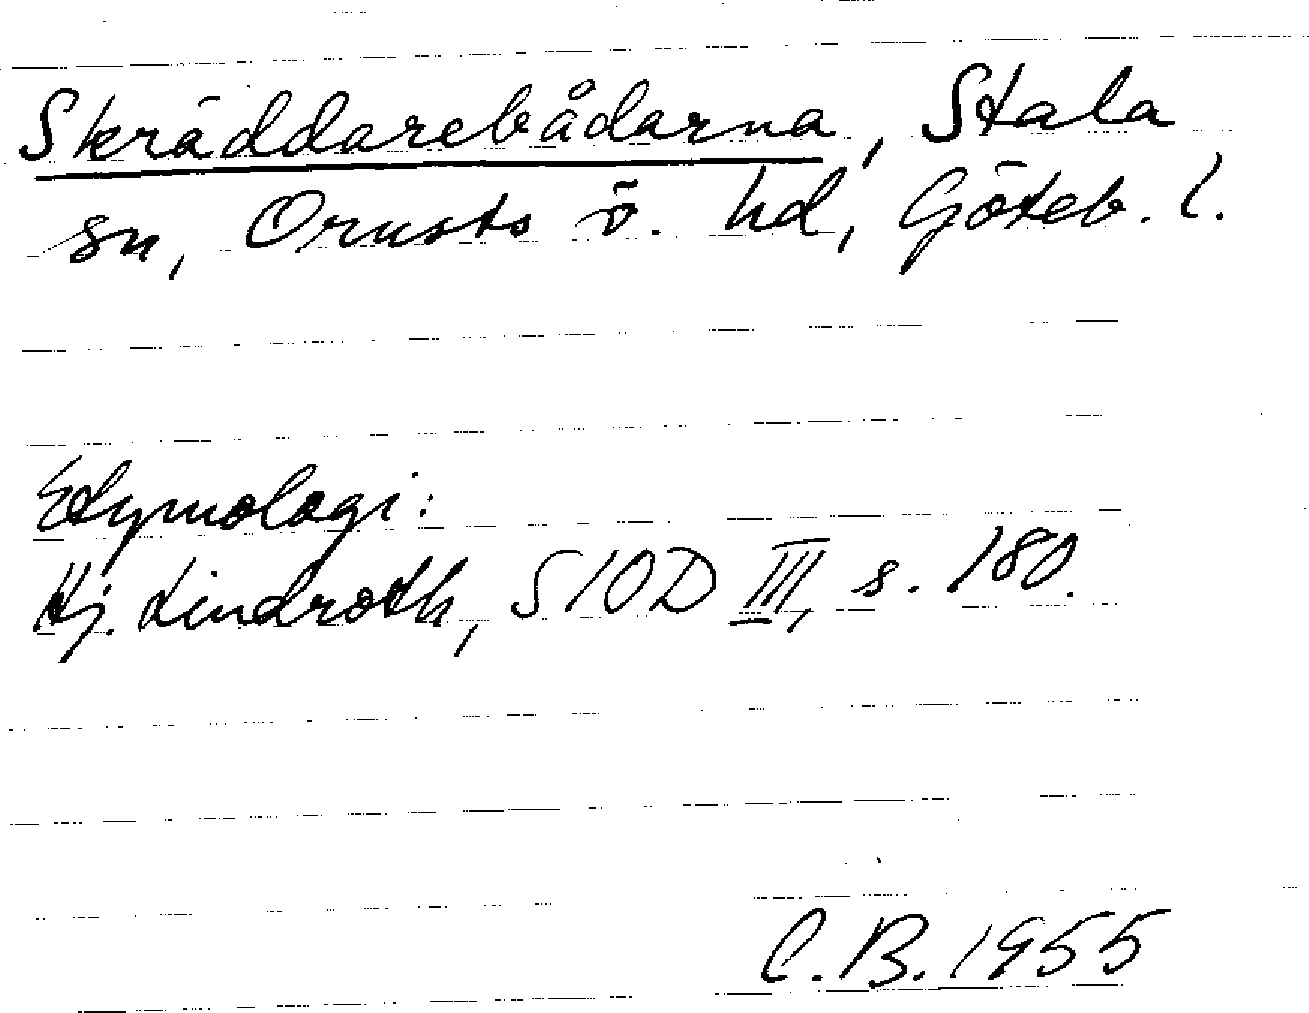 Skräddarebådarna, Stala
sn, Orusts ö. hd, Göteb. l.
Etymologi:
Hj. Lindroth, SIOD III, s. 180.
C.B. 1955